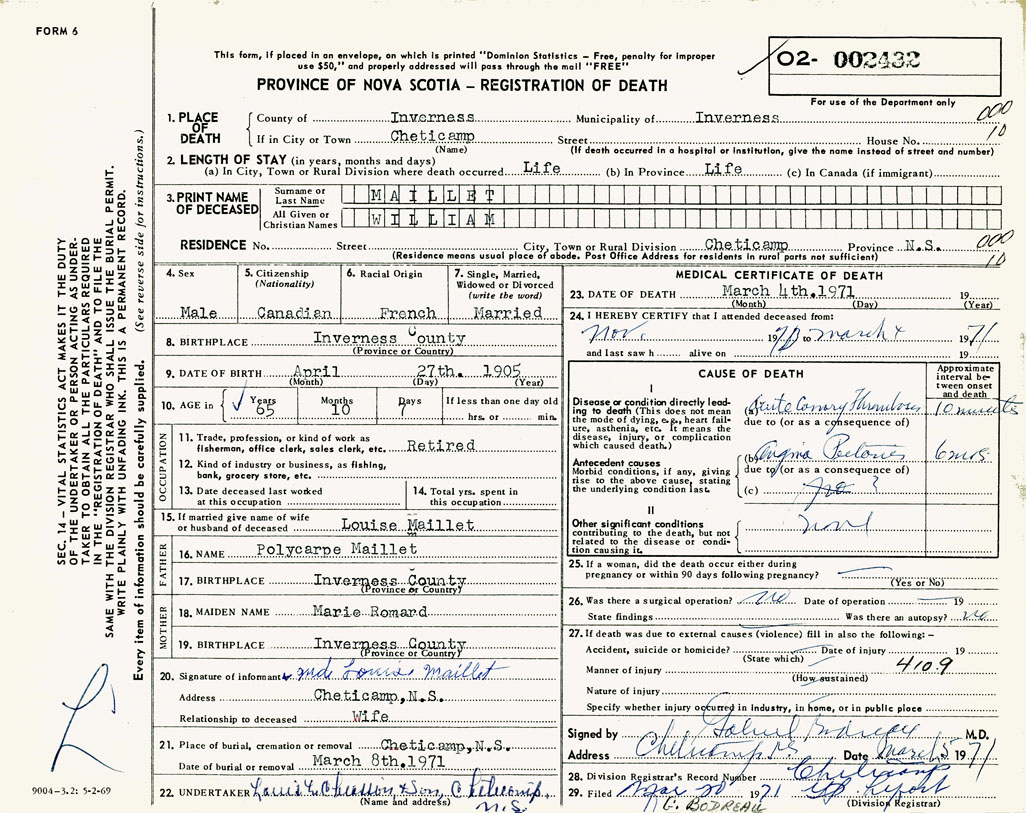 FORM 6
This form, if placed in an envelope, on which is printed "Dominion Statistics – Free, penalty for improper
use $50," and properly addressed will pass through the mail "FREE"
PROVINCE OF NOVA SCOTIA – REGISTRATION OF DEATH
O2- 002432
For use of the Department only
SEC. 14 – VITAL STATISTICS ACT MAKES IT THE DUTY
OF THE UNDERTAKER OR PERSON ACTING AS UNDER-
TAKER TO OBTAIN ALL THE PARTICULARS REQUIRED
IN THE "REGISTRATION OF DEATH" AND TO FILE THE
SAME WITH THE DIVISION REGISTRAR WHO SHALL ISSUE THE BURIAL PERMIT.
WRITE PLAINLY WITH UNFADING INK. THIS IS A PERMANENT RECORD.
Every item of information should be carefully supplied. (See reverse side for instructions.)
1. PLACE OF DEATH
County of Inverness Municipality of Inverness 000
If in City or Town Cheticamp Street House No. 10
(Name) (If death occurred in a hospital or institution, give the name instead of street and number)
2. LENGTH OF STAY (in years, months and days)
(a) In City, Town or Rural Division where death occurred Life (b) In Province Life (c) In Canada (if immigrant)
3. PRINT NAME OF DECEASED
Surname or Last Name MAILLET
All Given or Christian Names WILLIAM
RESIDENCE No. Street City, Town or Rural Division Cheticamp Province N.S. 000
(Residence means usual place of abode. Post Office Address for residents in rural parts not sufficient) 10
4. Sex
Male
5. Citizenship
(Nationality)
Canadian
6. Racial Origin
French
7. Single, Married,
Widowed or Divorced
(write the word)
Married
8. BIRTHPLACE Inverness County
(Province or Country)
9. DATE OF BIRTH April 27th. 1905
(Month) (Day) (Year)
10. AGE in Years 65 Months 10 Days 7 If less than one day old
hrs. or min.
OCCUPATION
11. Trade, profession, or kind of work as
fisherman, office clerk, sales clerk, etc. Retired
12. Kind of industry or business, as fishing,
bank, grocery store, etc.
13. Date deceased last worked
at this occupation
14. Total yrs. spent in
this occupation
15. If married give name of wife
or husband of deceased Louise Maillet
FATHER
16. NAME Polycarpe Maillet
17. BIRTHPLACE Inverness County
(Province or Country)
MOTHER
18. MAIDEN NAME Marie Romard
19. BIRTHPLACE Inverness County
(Province or Country)
20. Signature of informant Louise Maillet
Address Cheticamp, N.S.
Relationship to deceased Wife
21. Place of burial, cremation or removal Cheticamp, N.S.
Date of burial or removal March 8th.1971
22. UNDERTAKER Louis L Chiasson & Son, Cheticamp,
(Name and address) N.S.
9004–3.2: 5-2-69
MEDICAL CERTIFICATE OF DEATH
23. DATE OF DEATH March 4th.1971 19
(Month) (Day) (Year)
24. I HEREBY CERTIFY that I attended deceased from:
Nov. 1970 to March 4 1971
and last saw h alive on 19
CAUSE OF DEATH
Approximate
interval be-
tween onset
and death
I
Disease or condition directly lead-
ing to death (This does not mean
the mode of dying, e.g., heart fail-
ure, asthenia, etc. It means the
disease, injury, or complication
which caused death.)
(a) Thrombosis 10 minutes
due to (or as a consequence of)
Antecedent causes
Morbid conditions, if any, giving
rise to the above cause, stating
the underlying condition last.
(b) Angina 6 mos
due to (or as a consequence of)
(c) ?
II
Other significant conditions
contributing to the death, but not
related to the disease or condi-
tion causing it.
25. If a woman, did the death occur either during
pregnancy or within 90 days following pregnancy?
(Yes or No)
26. Was there a surgical operation? no Date of operation 19
State findings Was there an autopsy? no
27. If death was due to external causes (violence) fill in also the following: –
Accident, suicide or homicide? Date of injury 19
(State which)
Manner of injury 410.9
(How sustained)
Nature of injury
Specify whether injury occurred in industry, in home, or in public place
Signed by Gabriel Bodreau M.D.
Address Cheticamp NS Date March 5 1971
28. Division Registrar's Record Number Cheticamp
29. Filed Mar 20 1971
G. BODREAU (Division Registrar)